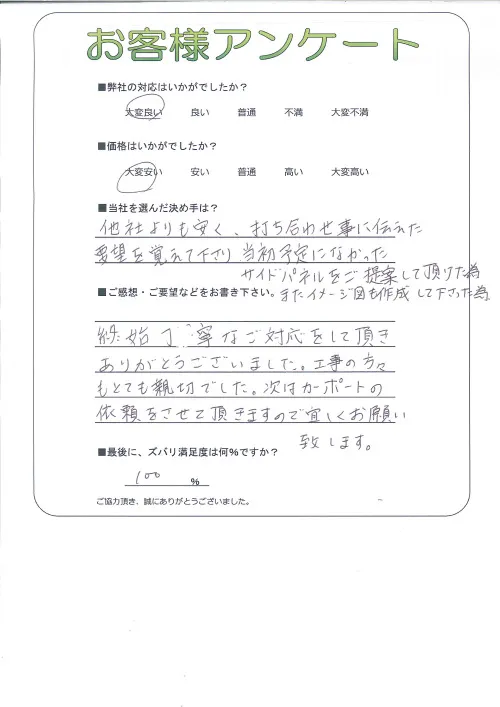 お客様アンケート
■弊社の対応はいかがでしたか？
大変良い 良い 普通 不満 大変不満
■価格はいかがでしたか？
大変安い 安い 普通 高い 大変高い
■当社を選んだ決め手は？
他社よりも安く、打ち合わせ事に伝えた
要望を覚えて下さり当初予定になかった
サイドパネルをご提案して頂けた為
またイメージ図も作成して下さった為
■ご感想・ご要望などをお書き下さい。
終始丁寧なご対応をして頂き
ありがとうございました。工事の方々
もとても親切でした。次はカーポートの
依頼をさせて頂きますので宜しくお願い
致します。
■最後に、ズバリ満足度は何%ですか？
100 %
ご協力頂き、誠にありがとうございました。